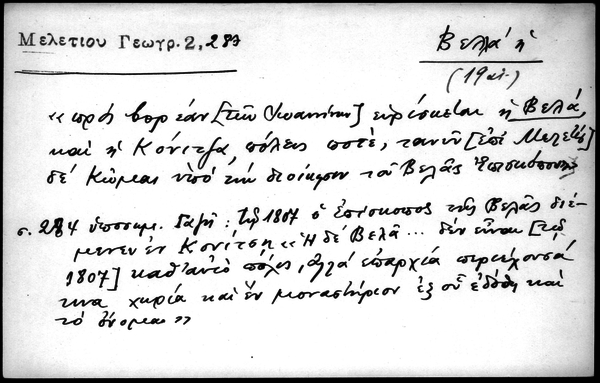 Μελετίου Γεωγρ. 2, 287
Βελλά ἡ
(19 αἰ.)
«πρὸς βορέαν [τῶν Ἰωαννίνων] εὑρίσκεται ἡ Βελά,
καὶ ἡ Κόνιτζα, πόλεις ποτὲ, τανῦν [ἐπὶ Μελετίου]
δὲ Κῶμαι ὑπὸ τὴν διοίκησιν τοῦ Βελᾶς Ἐπισκόπου»
σ. 284 ὑποσημ. Γαζῆ: τῷ 1807 ὁ ἐπίσκοπος τῆς Βελᾶς διέ-
μενεν ἐν Κονίτσῃ «Ἡ δὲ Βελᾶ ... δὲν εἶναι [τῷ
1807] καθ' αὑτὸ πόλις, ἀλλὰ ἐπαρχία περιέχουσά
τινα χωρία καὶ ἓν μοναστήριον ἐξ οὗ ἐδόθη καὶ
τὸ ὄνομα»